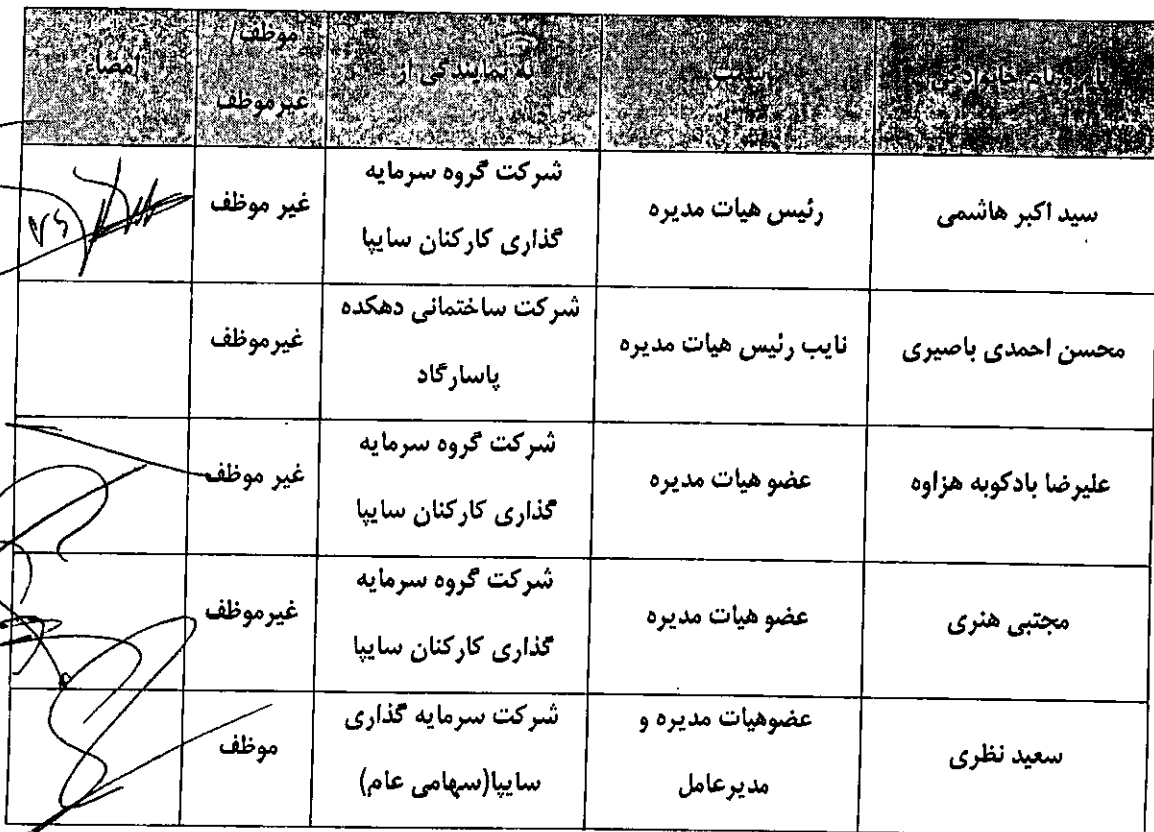 نام و نام خانوادگی
سمت
به نمایندگی از
موظف/
غیرموظف
امضاء
سید اکبر هاشمی
رئیس هیات مدیره
شرکت گروه سرمایه
گذاری کارکنان سایپا
غیر موظف
محسن احمدی باصیری
نایب رئیس هیات مدیره
شرکت ساختمانی دهکده
پاسارگاد
غیرموظف
علیرضا بادکوبه هزاوه
عضو هیات مدیره
شرکت گروه سرمایه
گذاری کارکنان سایپا
غیر موظف
مجتبی هنری
عضو هیات مدیره
شرکت گروه سرمایه
گذاری کارکنان سایپا
غیرموظف
سعید نظری
عضوهیات مدیره و
مدیرعامل
شرکت سرمایه گذاری
سایپا(سهامی عام)
موظف